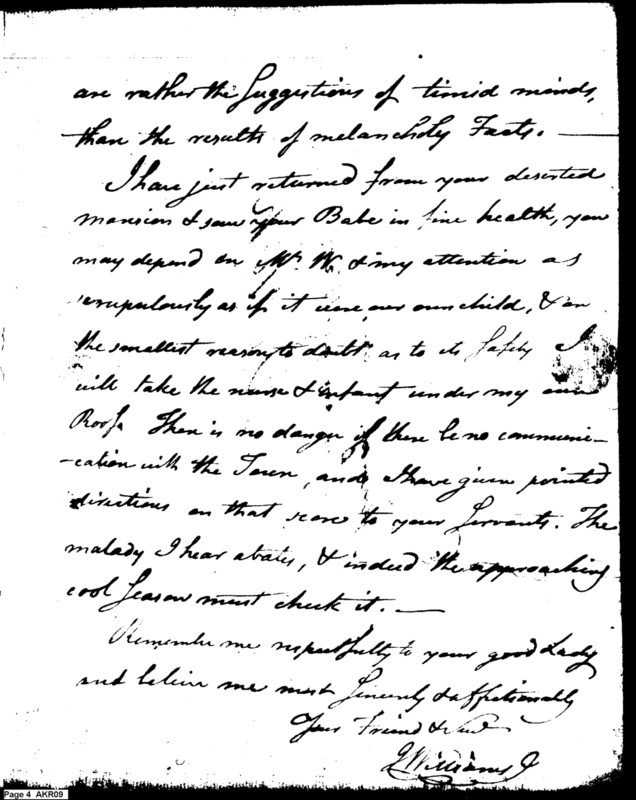 are rather the Suggestions of timid minds,
than the results of melancholy Facts. —
I have just returned from your deserted
mansion & saw your Babe in fine health, you
may depend on Mrs. W. & my attention as
scrupulously as if it were our own child, & on
the smallest reason to doubt as to its Safety I
will take the nurse & infant under my own
Roof. There is no danger if there be no communi-
-cation with the Town, and I have given pointed
directions on that score to your Servants. The
malady I hear abates, & indeed the approaching
cool Season must check it. —
Remember me respectfully to your good Lady
and believe me most Sincerely & affectionally
Your Friend &
J Williams
Page 4 AKR09